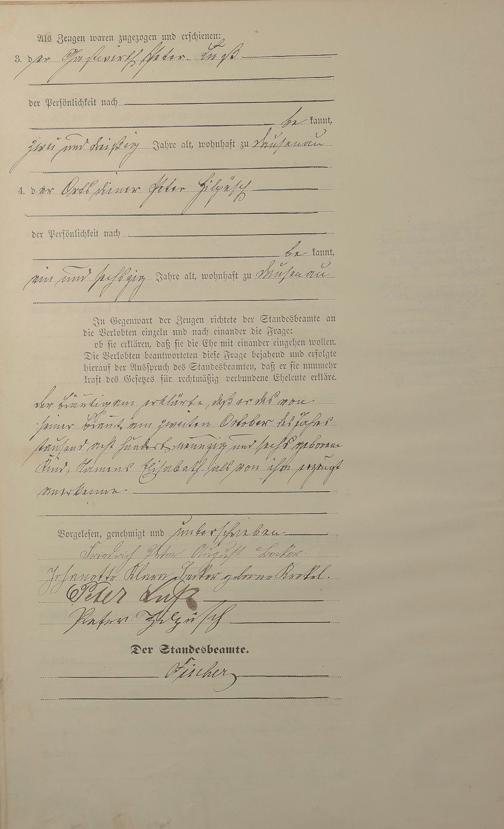 Als Zeugen waren zugezogen und erschienen:
3. der Gastwirth Peter
der Persönlichkeit nach
be kannt,
zwei und dreißig Jahre alt, wohnhaft zu Dausenau
4. der Ortsdiener Peter Hilpüsch
der Persönlichkeit nach
be kannt,
ein und sechszig Jahre alt, wohnhaft zu Dausenau
In Gegenwart der Zeugen richtete der Standesbeamte an
die Verlobten einzeln und nach einander die Frage:
ob sie erklären, daß sie die Ehe mit einander eingehen wollen.
Die Verlobten beantworteten diese Frage bejahend und erfolgte
hierauf der Ausspruch des Standesbeamten, daß er sie nunmehr
kraft des Gesetzes für rechtmäßig verbundene Eheleute erkläre.
Der Bräutigam erklärte, daß er das von
seiner Braut am zweiten October des Jahres
tausend acht hundert neunzig und sechs geborene
Kind, Namens Elisabeth als von ihm erzeugt
anerkenne.
Vorgelesen, genehmigt und unterschrieben
Friedrich Peter August
geborne
Peter
Peter Hilpüsch
Der Standesbeamte.
Fischer